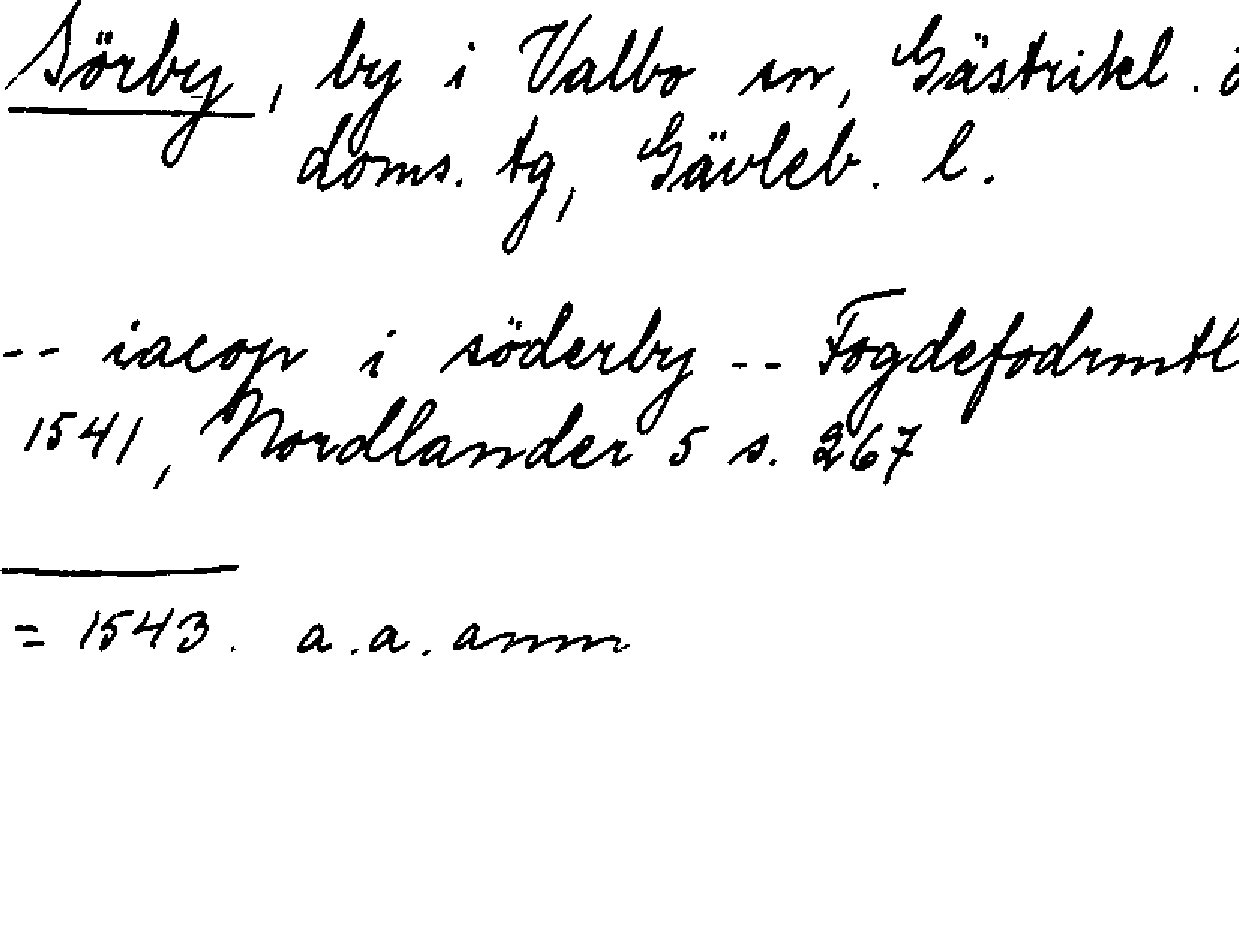 Sörby, by i Valbo sn, Gästrikl. ö
doms. tg, Gävleb. l.
-- iacop i söderby -- Fogdefodrmtl
1541, Nordlander 5 s. 267
= 1543. a.a. anm